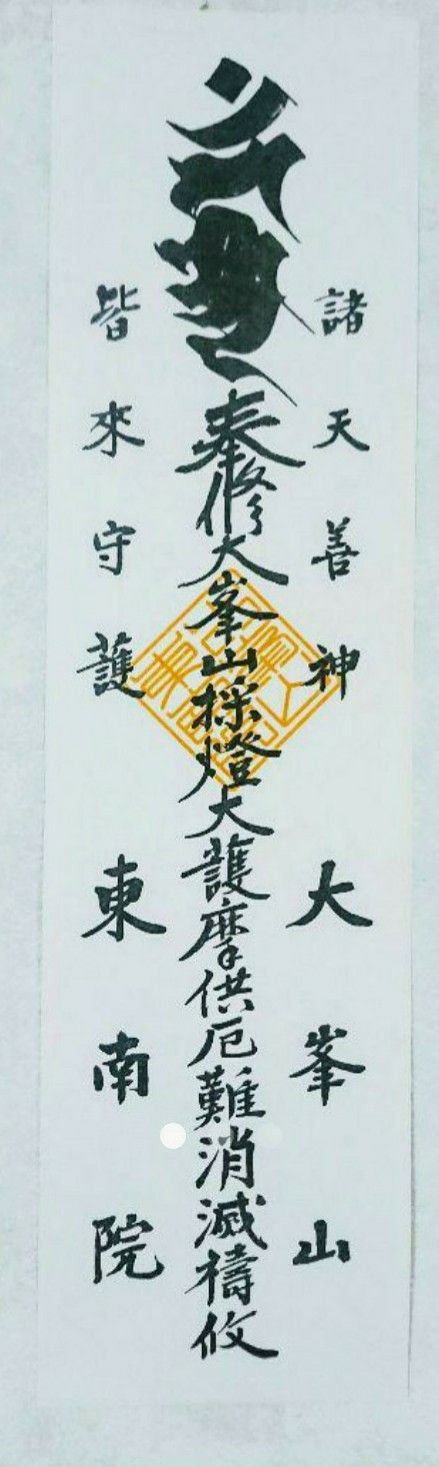 諸天善神
大峯山
奉修大峯山採燈大護摩供厄難消滅禱攸
皆來守護
東南院